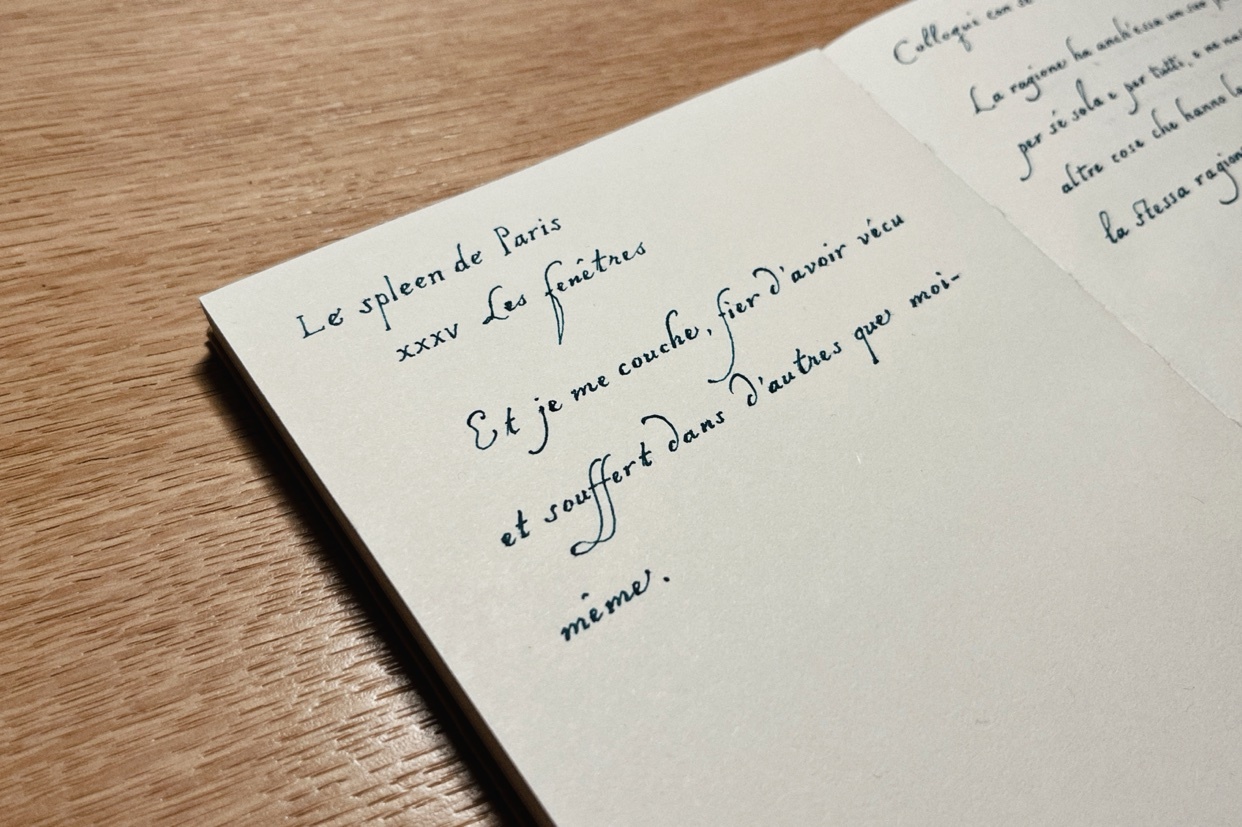 Le spleen de Paris
xxxv Les fenêtres
Et je me couche, fier d'avoir vécu
et souffert dans d'autres que moi-
même.
Colloqui con
La ragione ha anch'essa un suo
per sé sola e per tutti, e ne
altre cose che hanno
la stessa